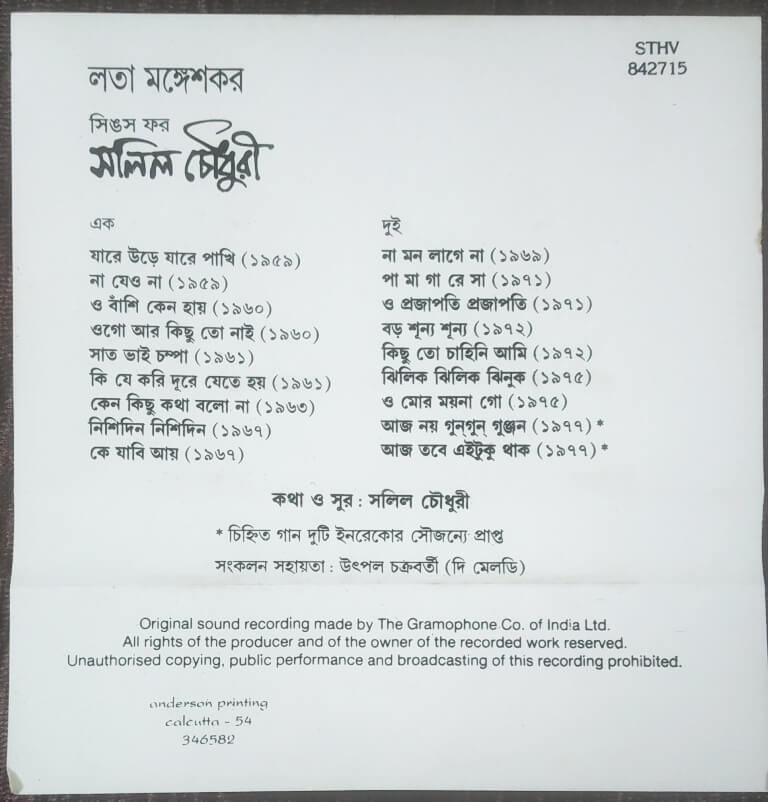 STHV
842715
লতা মঙ্গেশকর
সিঙস ফর
সলিল চৌধুরী
এক
যারে উড়ে যারে পাখি (১৯৫৯)
না যেও না (১৯৫৯)
ও বাঁশি কেন হায় (১৯৬০)
ওগো আর কিছু তো নাই (১৯৬০)
সাত ভাই চম্পা (১৯৬১)
কি যে করি দূরে যেতে হয় (১৯৬১)
কেন কিছু কথা বলো না (১৯৬৩)
নিশিদিন নিশিদিন (১৯৬৭)
কে যাবি আয় (১৯৬৭)
দুই
না মন লাগে না (১৯৬৯)
পা মা গা রে সা (১৯৭১)
ও প্রজাপতি প্রজাপতি (১৯৭১)
বড় শূন্য শূন্য (১৯৭২)
কিছু তো চাহিনি আমি (১৯৭২)
ঝিলিক ঝিলিক ঝিনুক (১৯৭৫)
ও মোর ময়না গো (১৯৭৫)
আজ নয় গুন্‌গুন্‌ গুঞ্জন (১৯৭৭) *
আজ তবে এইটুকু থাক (১৯৭৭) *
কথা ও সুর : সলিল চৌধুরী
* চিহ্নিত গান দুটি ইনরেকোর সৌজন্যে প্রাপ্ত
সংকলন সহায়তা : উৎপল চক্রবর্তী (দি মেলডি)
Original sound recording made by The Gramophone Co. of India Ltd.
All rights of the producer and of the owner of the recorded work reserved.
Unauthorised copying, public performance and broadcasting of this recording prohibited.
anderson printing
calcutta - 54
346582